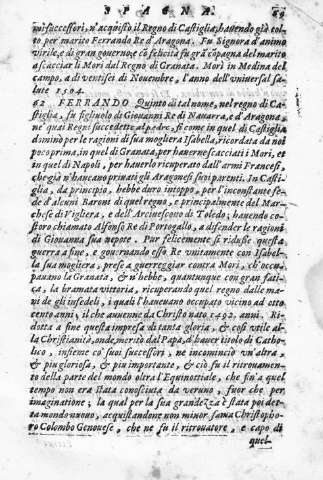 SPAGNA. 69
ni successori, n'acquistò il Regno di Castiglia, hauendo già tolto
per marito Ferrando Re d'Aragona. Fu Signora d'animo
virile, e di gran gouerno, e cõ felicità fu grã cõpagna del marito
a scacciar li Mori dal Regno di Granata. Morì in Medina del
campo, a di ventisei di Nouembre, l'anno dell'vniuersal salute
1504.
62 FERRANDO Quinto di tal nome, nel regno di Castiglia,
fu figliuolo di Giouanni Re di Nauarra, e d'Aragona,
ne' quai Regni succedette al padre, sì come in quel di Castiglia
dominò per le ragioni di sua mogliera Isabella, ricordata da noi
poco prima, in quel di Granata, per hauerne scacciati i Mori, et
in quel di Napoli, per hauerlo ricuperato dall'armi Francesi,
che già n'haueano priuati gli Aragonesi suoi parenti. In Castiglia,
da principio, hebbe duro intoppo, per l'inconstante fede
d'alcuni Baroni di quel regno, e principalmente del Marchese
di Vigliera, e dell'Arciuescouo di Toledo; hauendo costoro
chiamato Alfonso Re di Portogallo, a difender le ragioni
di Giouanna sua nepote. Pur felicemente si ridusse questa
guerra a fine, e gouernando esso Re vnitamente con Isabella
sua mogliera, prese a guerreggiar contra Mori, ch'occupauano
la Granata, & n'hebbe, quantunque con gran fatica,
la bramata vittoria, ricuperando quel regno dalle mani
de gli infedeli, i quali l'haueano occupato vicino ad otto
cento anni, il che auuenne da Christo nato 1492. anni. Ridotta
a fine questa impresa di tanta gloria, & così vtile alla
Christianità, onde meritò dal Papa, d'hauer titolo di Catholico,
insieme co' suoi successori, ne incominciò vn'altra,
& piu gloriosa, & piu importante, & ciò fu il ritrouamento
della parte del mondo oltra l'Equinottiale, che fin'a quel
tempo non era stata conosciuta da veruno, fuor che per
imaginatione; la qual per la sua grandezza è stata poi detta
mondo nuouo, acquistandone non minor fama Christophoro
Colombo Genouese, che ne fu il ritrouatore, e capo di
quel-